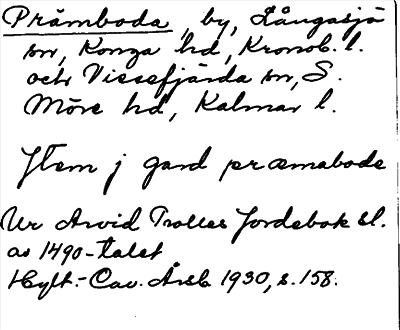 Pråmboda, by, Långasjö
sn, Konga hd, Kronob. l.
och Vissefjärda sn, S.
Möre hd, Kalmar l.
Jtem j gard præmabode
Ur Arvid Trolles Jordebok sl.
av 1490-talet
Hylt.-Cav. Årsb. 1930, s. 158.